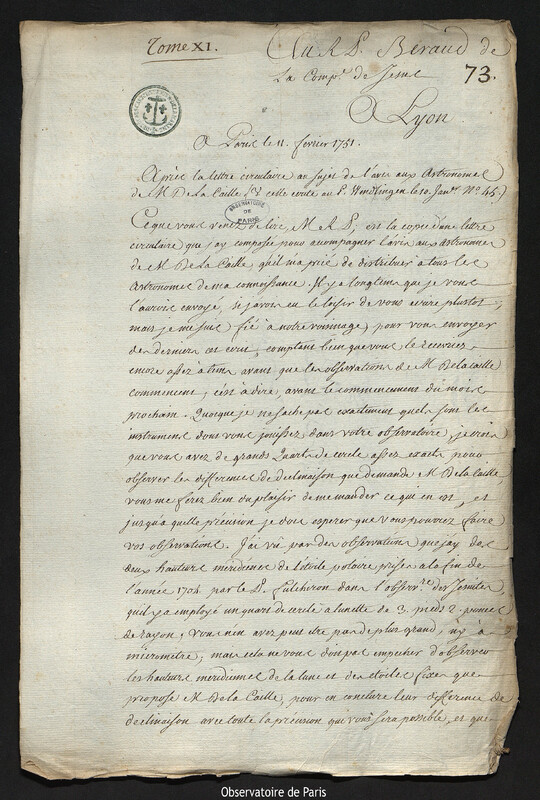 Tome XI.
Au R. P. Béraud de
La Comp.e de Jesus
73.
A Lyon
OBSERVATOIRE DE PARIS
A Paris le 11. fevrier 1751.
Après la lettre circulaire au sujet de l'avis aux Astronomes
de M. De la Caille cette ecrite au P. Wendlingen le 10. Janv.r N.o 45.)
Ce que vous venez de lire, M. R. P., est la copie d'une lettre
circulaire que j'ay composée pour accompagner l'avis aux astronomes
de M. De la Caille qu'il m'a prié de distribuer à tous les
Astronomes de ma connoissance. Il y a longtems que je vous
l'aurois envoyé, si j'avois eu le loisir de vous ecrire plustost;
mais je me suis fié à notre voisinage, pour vous envoyer
des derniers cet ecrit, comptant bien que vous le recevriez
encore assez à tems avant que les observations de M. De la Caille
commencent, c'est à dire, avant le commencement du mois
prochain. Quoique je ne sache pas exactement quels sont les
instrumens dont vous jouissez dans votre observatoire, je crois
que vous avez de grands Quarts de cercle assez exacts pour
observer les differences de declinaison que demande M. De la Caille
vous me ferez bien du plaisir de me mander ce qui en est, et
jusqu'à quelle précision je dois esperer que vous pourrez faire
vos observations. J'ai vû par des observations que j'ay de
deux hauteurs meridiennes de l'etoile polaire prises à la fin de
l'année 1704. par le P. Fulchiron dans l'observ.re des Jesuites
qu'il y a employé un quart de cercle à lunette de 3. pieds 2. pouces
de rayon; vous n'en avez peut etre pas de plus grand, n'y à
micrometre, mais cela ne vous doit pas empecher d'observer
les hauteurs meridiennes de la lune et des etoiles fixes que
propose M. De la Caille, pour en conclure leur difference de
declinaison avec toute la précision qui vous sera possible, et que
Observatoire de Paris